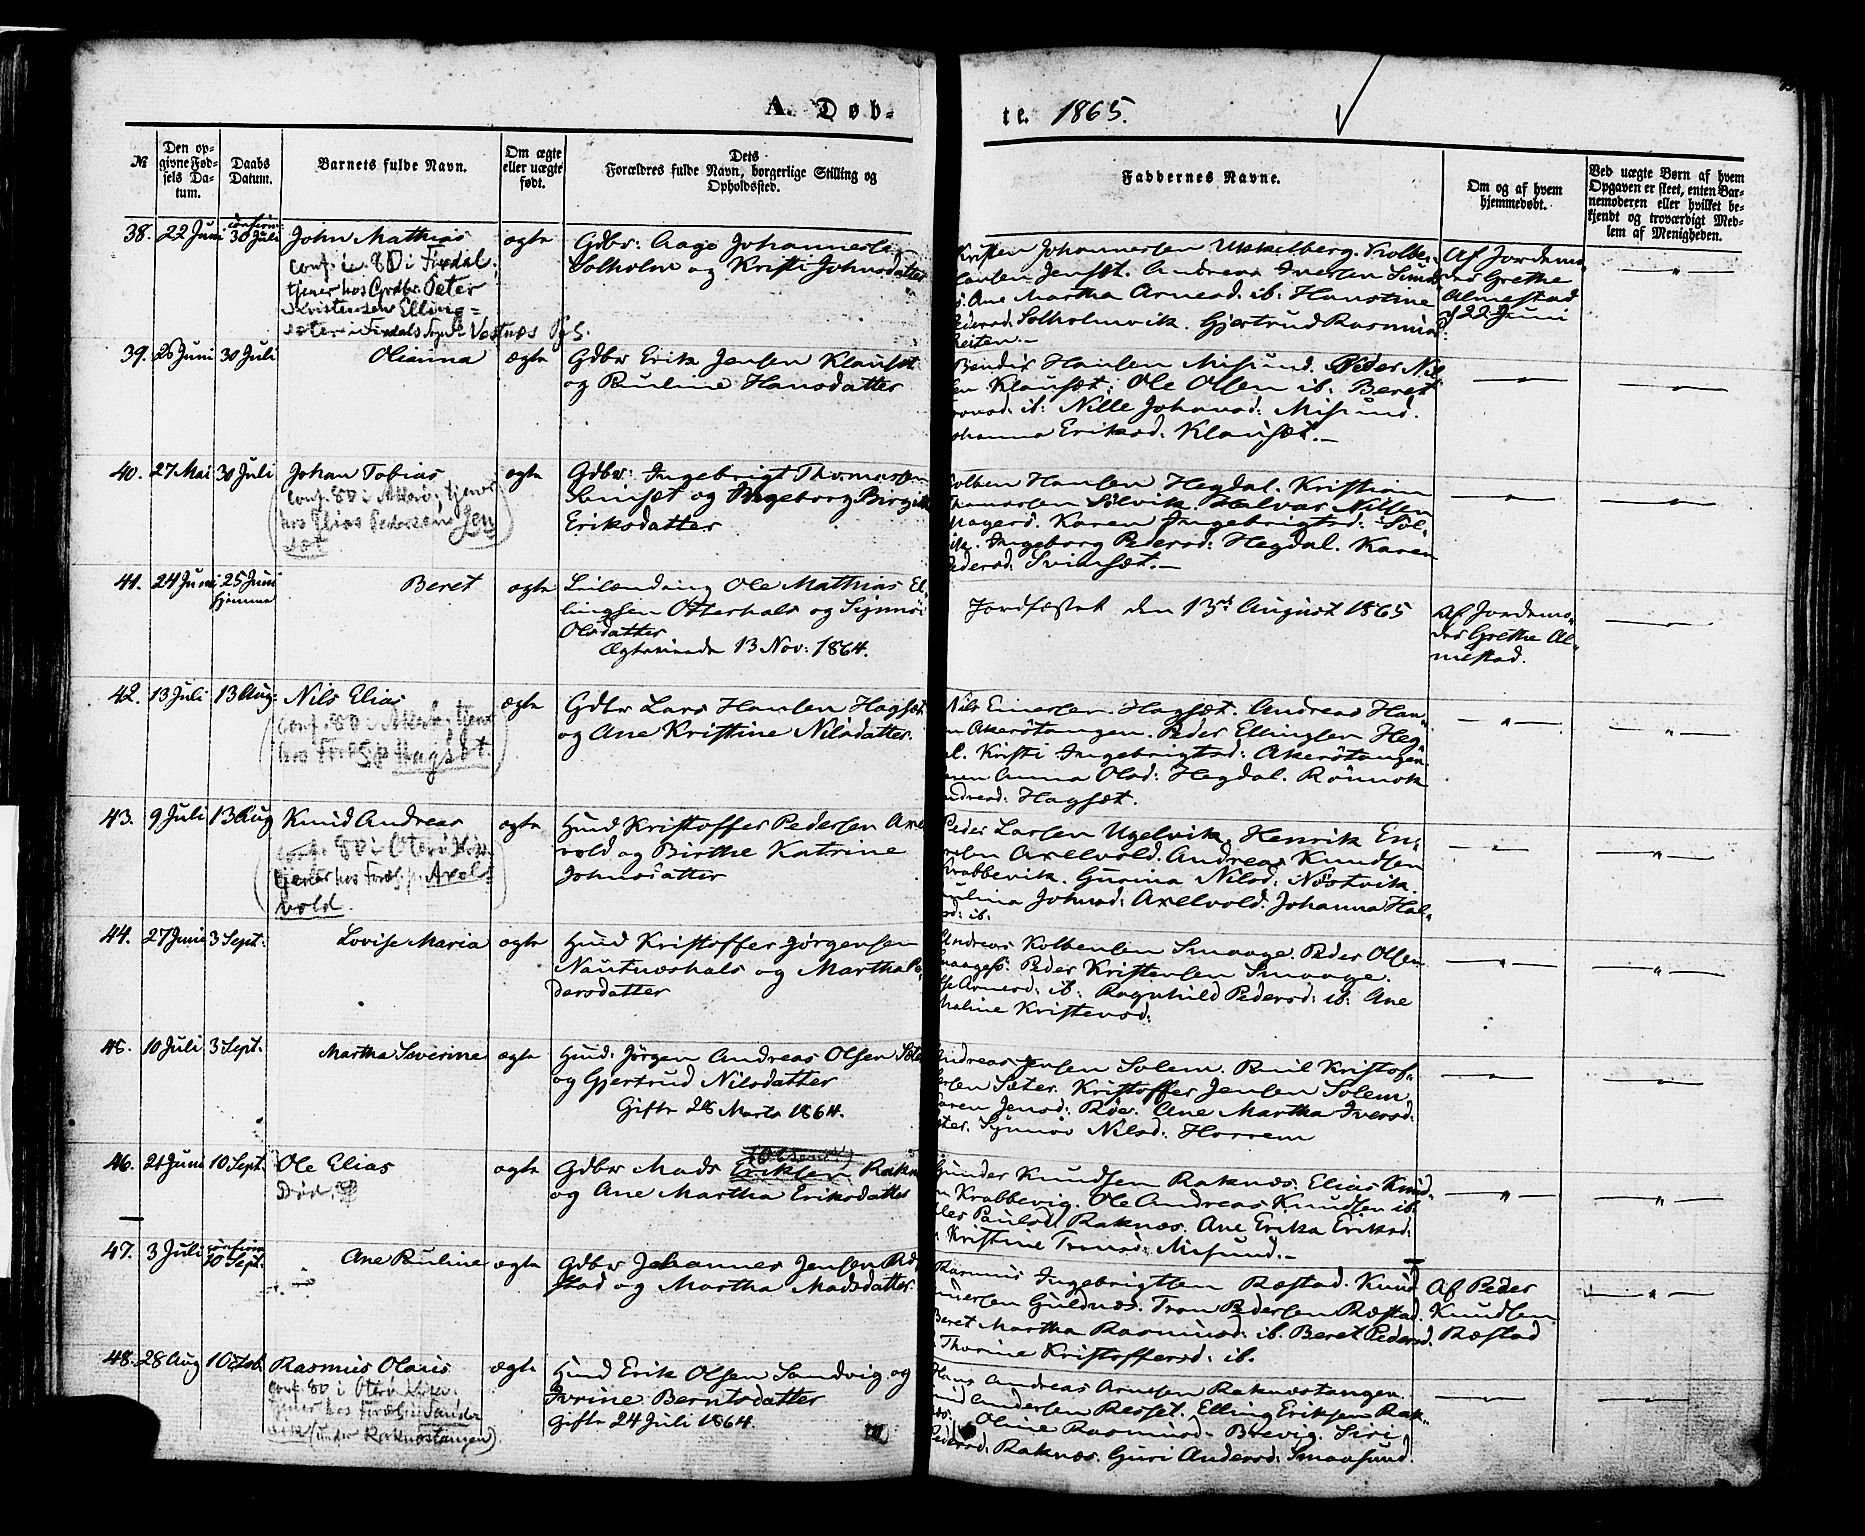 A. Døb-
te. 1865.
№
Den op-
givne Fød-
sels Da-
tum.
Daabs
Datum.
Barnets fulde Navn.
Om ægte
eller uægte
født.
Dets
Forældres fulde Navn, borgerlige Stilling og
Opholdssted.
Faddernes Navne.
Om og af hvem
hjemmedøbt.
Ved uægte Børn af hvem
Opgaven er skeet, enten Bar-
nemoderen eller hvilket be-
kjendt og troværdigt Med-
lem af Menigheden.
38. 22 Juni 30 Juli John Mathias ægte
conf. i 80 i Fixdal
tjener hos Grdbr. Peter
Kristensen Elling=
sæter i Fixdals Sogn Vestnæs Pgj.
Gdbr: Aage Johannesen
Solholm og Kristi Johnsdatter
Kristen Johannesen Ukkelberg. Kolben
Jenset. Andreas Iversen
Ane Martha Arnesd. ib: Hanstine
Pedersd. Solholmvik. Gjertrud Rasmusd.
Af Jordemo-
der Grethe
Almestad
d 22 Juni
39. 28 Juni 30 Juli Olianna ægte
Gdbr Erik Jensen Klauset
og Pauline Hansdatter
Bendix Hansen Misund. Peder Nil-
sen Klauset. Ole Olsen ib: Beret
ib: Nille Johansd: Misund.
Johanna Eriksd: Klauset.
40. 27 Mai 30 Juli Johan Tobias ægte
conf. 80 i Akerø, tjener
hos Elias Pedersen Jen
set
Gdbr: Ingebrigt Thomassen
og Ingeborg Birgitte
Eriksdatter
Kolben Hansen Hegdal. Kristian
Thomassen Sølvik. Halvar Nilsen
Magerø. Karen Ingebrigtsd: Søl-
vik. Ingeborg Pedersd: Hegdal. Karen
Pedersd: Svinset.
41. 24 Juni 25 Juni Beret ægte
hjemme
Leilænding Ole Mathias El-
lingsen Otterhals og Synnøv
Olsdatter
Ægteviede 13 Nov: 1864.
Jordfæstet den 13de August 1865
Af Jordemo-
der Grethe Al-
mestad.
42. 13 Juli 13 Aug: Nils Elias ægte
conf. 80 i Akerø, tjener
hos Foræ. på Hagset.
Gdbr Lars Hansen Hagset
og Ane Kristine Nilsdatter.
Nils Einersen Hagset. Andreas Han-
sen Akerøtangen. Peder Ellingsen Heg-
dal. Kristi Ingebrigtsd: Akerøtangen.
Anna Olsd: Hegdal. Rønnok
Andresd: Hagset.
43. 9 Juli 13 Aug Knud Andreas ægte
conf. 80 i Oterø Kirke
tjener hos Foræ. p. Axel-
vold.
Huusmd Kristoffer Pedersen Axel
vold og Birthe Katrine
Johnsdatter
Peder Larsen Ugelvik. Henrik En-
Axelvold. Andreas Knudsen
Krabbevik. Gurina Nilsd: Nøstvik.
Johnsd: Axelvold. Johanna Hal-
sd: ib.
44. 27 Juni 3 Sept: Lovise Maria ægte
Huusmd Kristoffer Jørgensen
Nautneshals og Martha Pe-
dersdatter
Andreas Kolbensen Smaage. Peder Olsen
Smaage. Peder Kristensen Smaage.
Arnesd: ib: Ragnhild Pedersd: ib: Ane
Kristensd:
45. 10 Juli 3 Sept: Martha Severine ægte
Huusmd: Jørgen Andreas Olsen Sæter
og Gjertrud Nilsdatter
Gifte 28 Marts 1864.
Andreas Jensen Solem. Paul Kristof-
fersen Sæter. Kristoffer Jensen Solem.
Karen Jensd: Røe. Ane Martha Iversd:
Sæter. Synnøv Nilsd: Horrem
46. 21 Juni 10 Sept. Ole Elias ægte
Død,
Gdbr Mads Eriksen Raknes
og Ane Martha Eriksdatter
Gunder Knudsen Raknes. Elias Knud-
sen Krabbevig. Ole Andreas Knudsen ib.
Paulsd: Raknes. Ane Erika Eriksd:
Kristine Tronsd: Misund.
47. 3 Juli 10 Sept. Ane Pauline ægte
Gdbr Johannes Jensen Ræ-
stad og Martha Madsdatter.
Rasmus Ingebrigtsen Ræstad. Knud
Guldnes. Tron Pedersen Ræstad.
Beret Martha Rasmusd: ib. Beret Pedersd.
Thorine Kristoffersd: ib.
Af Peder
Knudsen
Ræstad
48. 28 Aug 1 Octob. Rasmus Olaus ægte
conf. 80 i Oterø Kirke.
tjener hos Foræ. i Sande
vik (under Raknestangen)
Huusmd Erik Olsen Sandvig og
Ivrine Berntsdatter
Gifte 24 Juli 1864.
Hans Andreas Arnesen Raknestangen.
Andersen Resset. Elling Eriksen Rak-
nes. Oline Rasmusd: Brevig. Siri
Pedersd: Raknes. Guri Andersd: Smaasund.